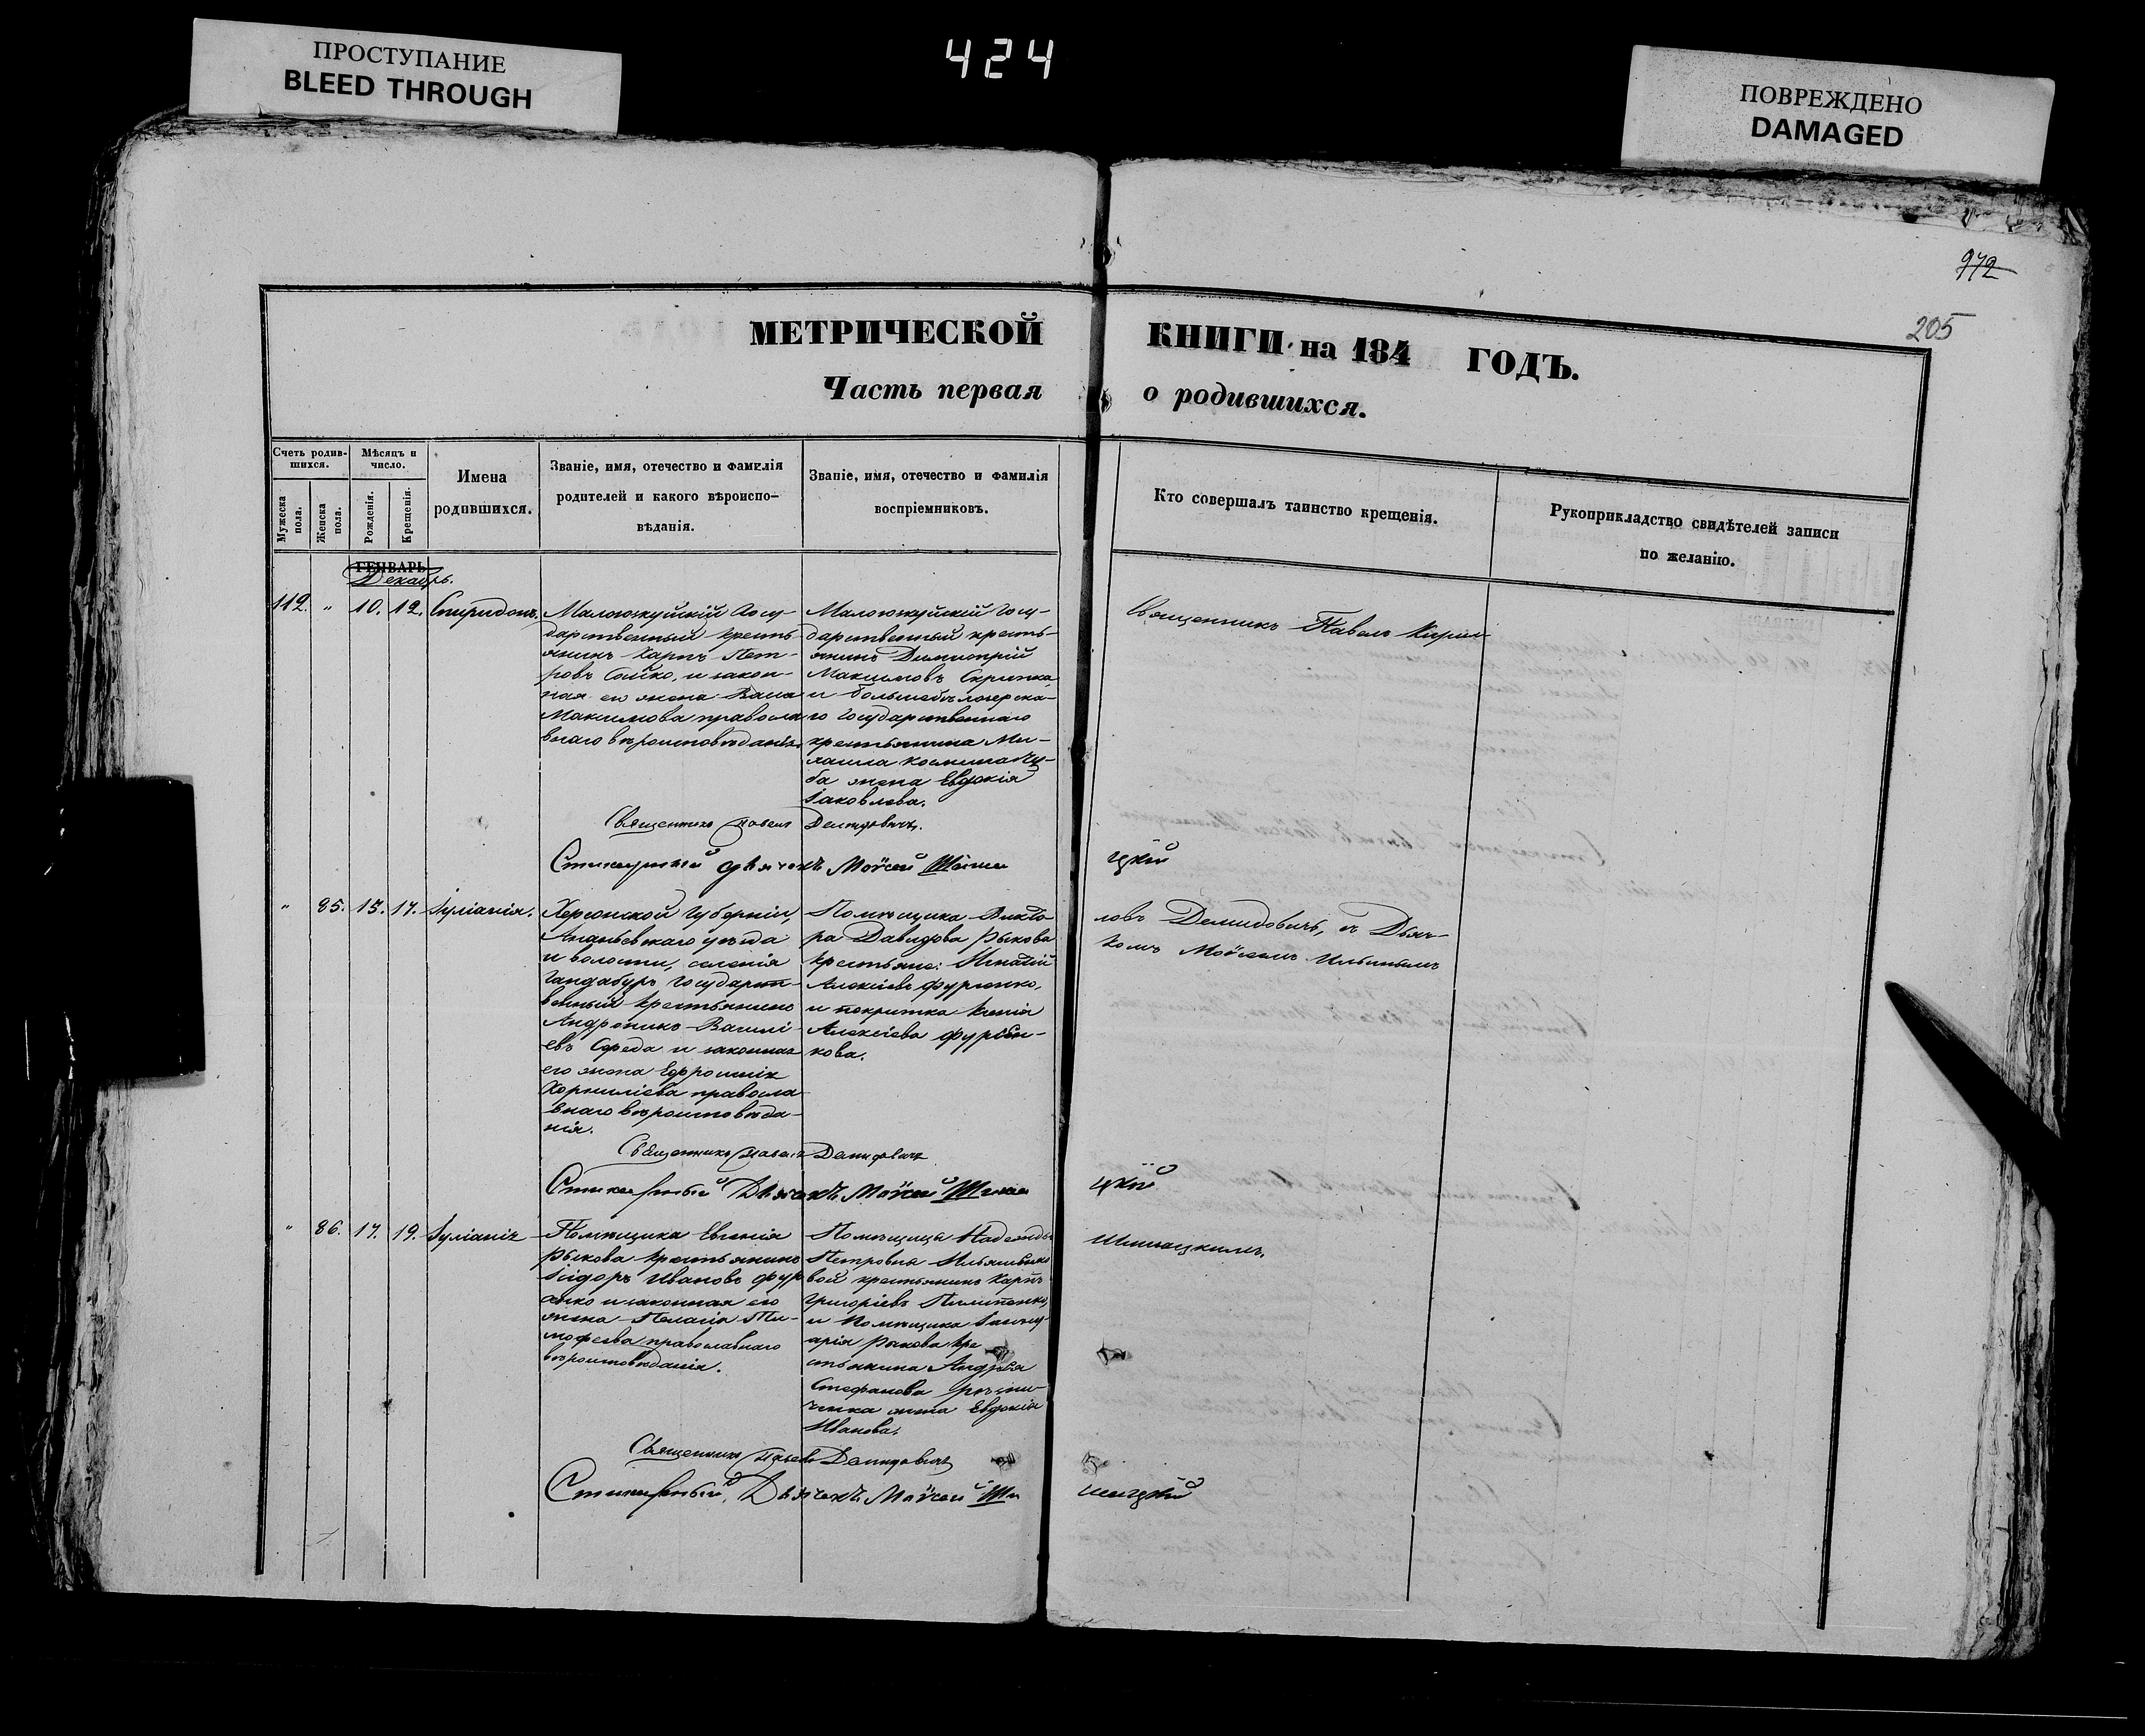 ПРОСТУПАНИЕ
BLEED THROUGH
424
ПОВРЕЖДЕНО
DAMAGED
972
205
МЕТРИЧЕСКОЙ КНИГИ на 184 ГОДЪ.
Часть первая о родившихся.
Счетъ родив-
шихся.
Мужеска
пола.
Женска
пола.
Мѣсяцъ и
число.
Рожденія.
Крещенія.
Имена
родившихся.
Званіе, имя, отечество и фамилія
родителей и какого вѣроиспо-
вѣданія.
Званіе, имя, отечество и фамилія
воспріемниковъ.
Кто совершалъ таинство крещенія.
Рукоприкладство свидѣтелей записи
по желанію.
ГЕНВАРЬ
Декабрь.
112. " 10. 12. Спиридонъ.
Малоюжуйскій Госу-
дарственный кресть-
янинъ Карпъ Пет-
ровъ и закон-
ная его жена
Максимова правосла
внаго вѣроисповѣданія.
Малоюжуйскій Госу-
дарственный кресть-
янинъ Димитрій
Максимовъ Скрипка
и
го Государственнаго
крестьянина
жена Евдокія
Іаковлева.
Священникъ Павелъ Кирил
Священникъ Павелъ Демидовичъ.
Стихарный Дьячекъ Моѵсей Шима
цкій
" 85. 15. 17. Іуліанія.
Херсонской Губерніи,
Ананьевскаго уѣзда
и волости, селенія
Гандабуръ Государст-
венный крестьянинъ
Андроникъ Василі-
евъ Середа и законная
его жена Ефросинія
Корниліева правосла
внаго вѣроисповѣда-
нія.
Помѣщика Викто
ра Давидова Рыкова
крестьяне: Игнатій
Алексіевъ Фурсенко,
и покритка Ксенія
Алексіева Фурсен-
кова.
ловъ Демидовичъ, съ Дьяч-
комъ Моѵсеемъ Ильинымъ
Священникъ Павелъ Демидовичъ
Стихарный Дьячекъ Моѵсей Шима
цкій
" 86. 17. 19. Іуліанія
Помѣщика Евгенія
Рыкова крестьянинъ
Ісідоръ Ивановъ Фур
сенко и законная его
жена Пелагія Ти-
мофеева православнаго
вѣроисповѣданія.
Помѣщицы Надежды
Петровны
вой крестьянинъ Карпъ
Григоріевъ Пилипенко,
и Помѣщика
арія Рыкова кре
стьянина Андрея
Стефанова
жена Евдокія
Иванова.
Шимацкимъ.
Священникъ Павелъ Демидовичъ
Стихарный Дьячекъ Моѵсей Ши
мацкій